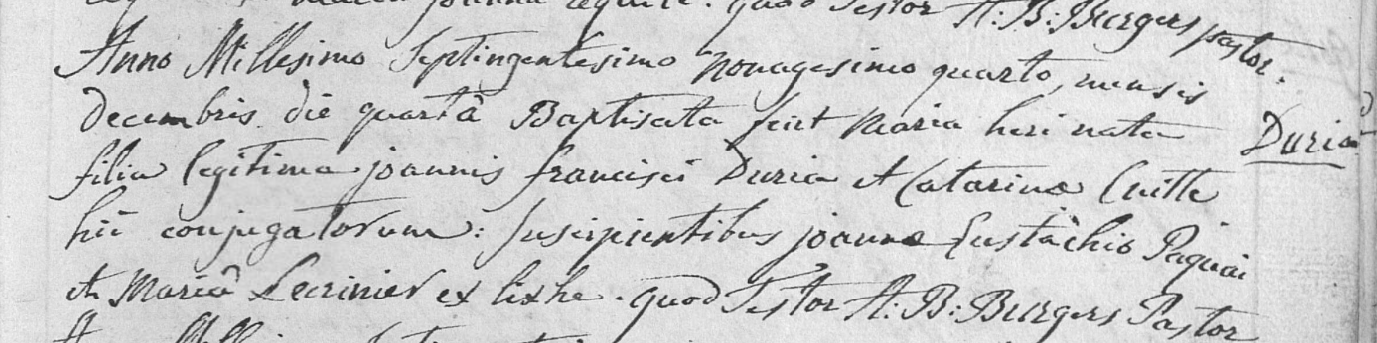 joanna requile. quod Testor H: B: Burgers pastor.
Anno Millesimo Septingentesimo nonagesimo quarto, mensis
Decembris die quartâ Baptisata fuit Maria heri nata
Duria
filia legitima joannis francisci Duria et Catarina Cuitte
hîc conjugatorum: suscipientibus joanne Eustachio Paquai
et Mariâ Lecrinier ex lixhe. quod Testor H: B: Burgers Pastor